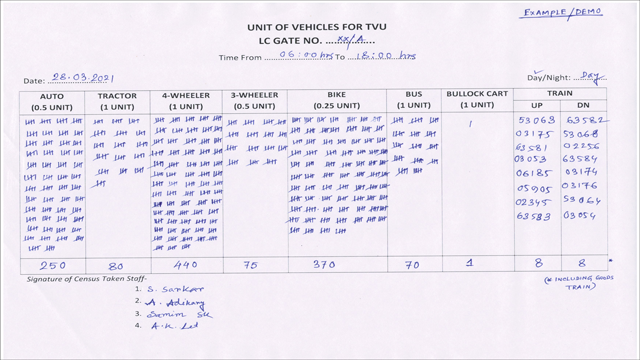 EXAMPLE/DEMO
UNIT OF VEHICLES FOR TVU
LC GATE NO. ....XX/A....
Time From ....06:00hrs To ....18:00 hrs
Date: 28.03.2021 Day/Night: Day
AUTO (0.5 UNIT) TRACTOR (1 UNIT) 4-WHEELER (1 UNIT) 3-WHEELER (0.5 UNIT) BIKE (0.25 UNIT) BUS (1 UNIT) BULLOCK CART (1 UNIT) TRAIN
UP DN
53063 63582
03175 53068
63581 02256
03053 63584
06185 03174
05905 03176
02345 53064
63583 03054
250 80 440 75 370 70 1 8 8 *
Signature of Census Taken Staff-
(* INCLUDING GOODS
TRAIN)
1. S. Sarkar
2. A. Adikary
3. Samim Sk
4. A.K.